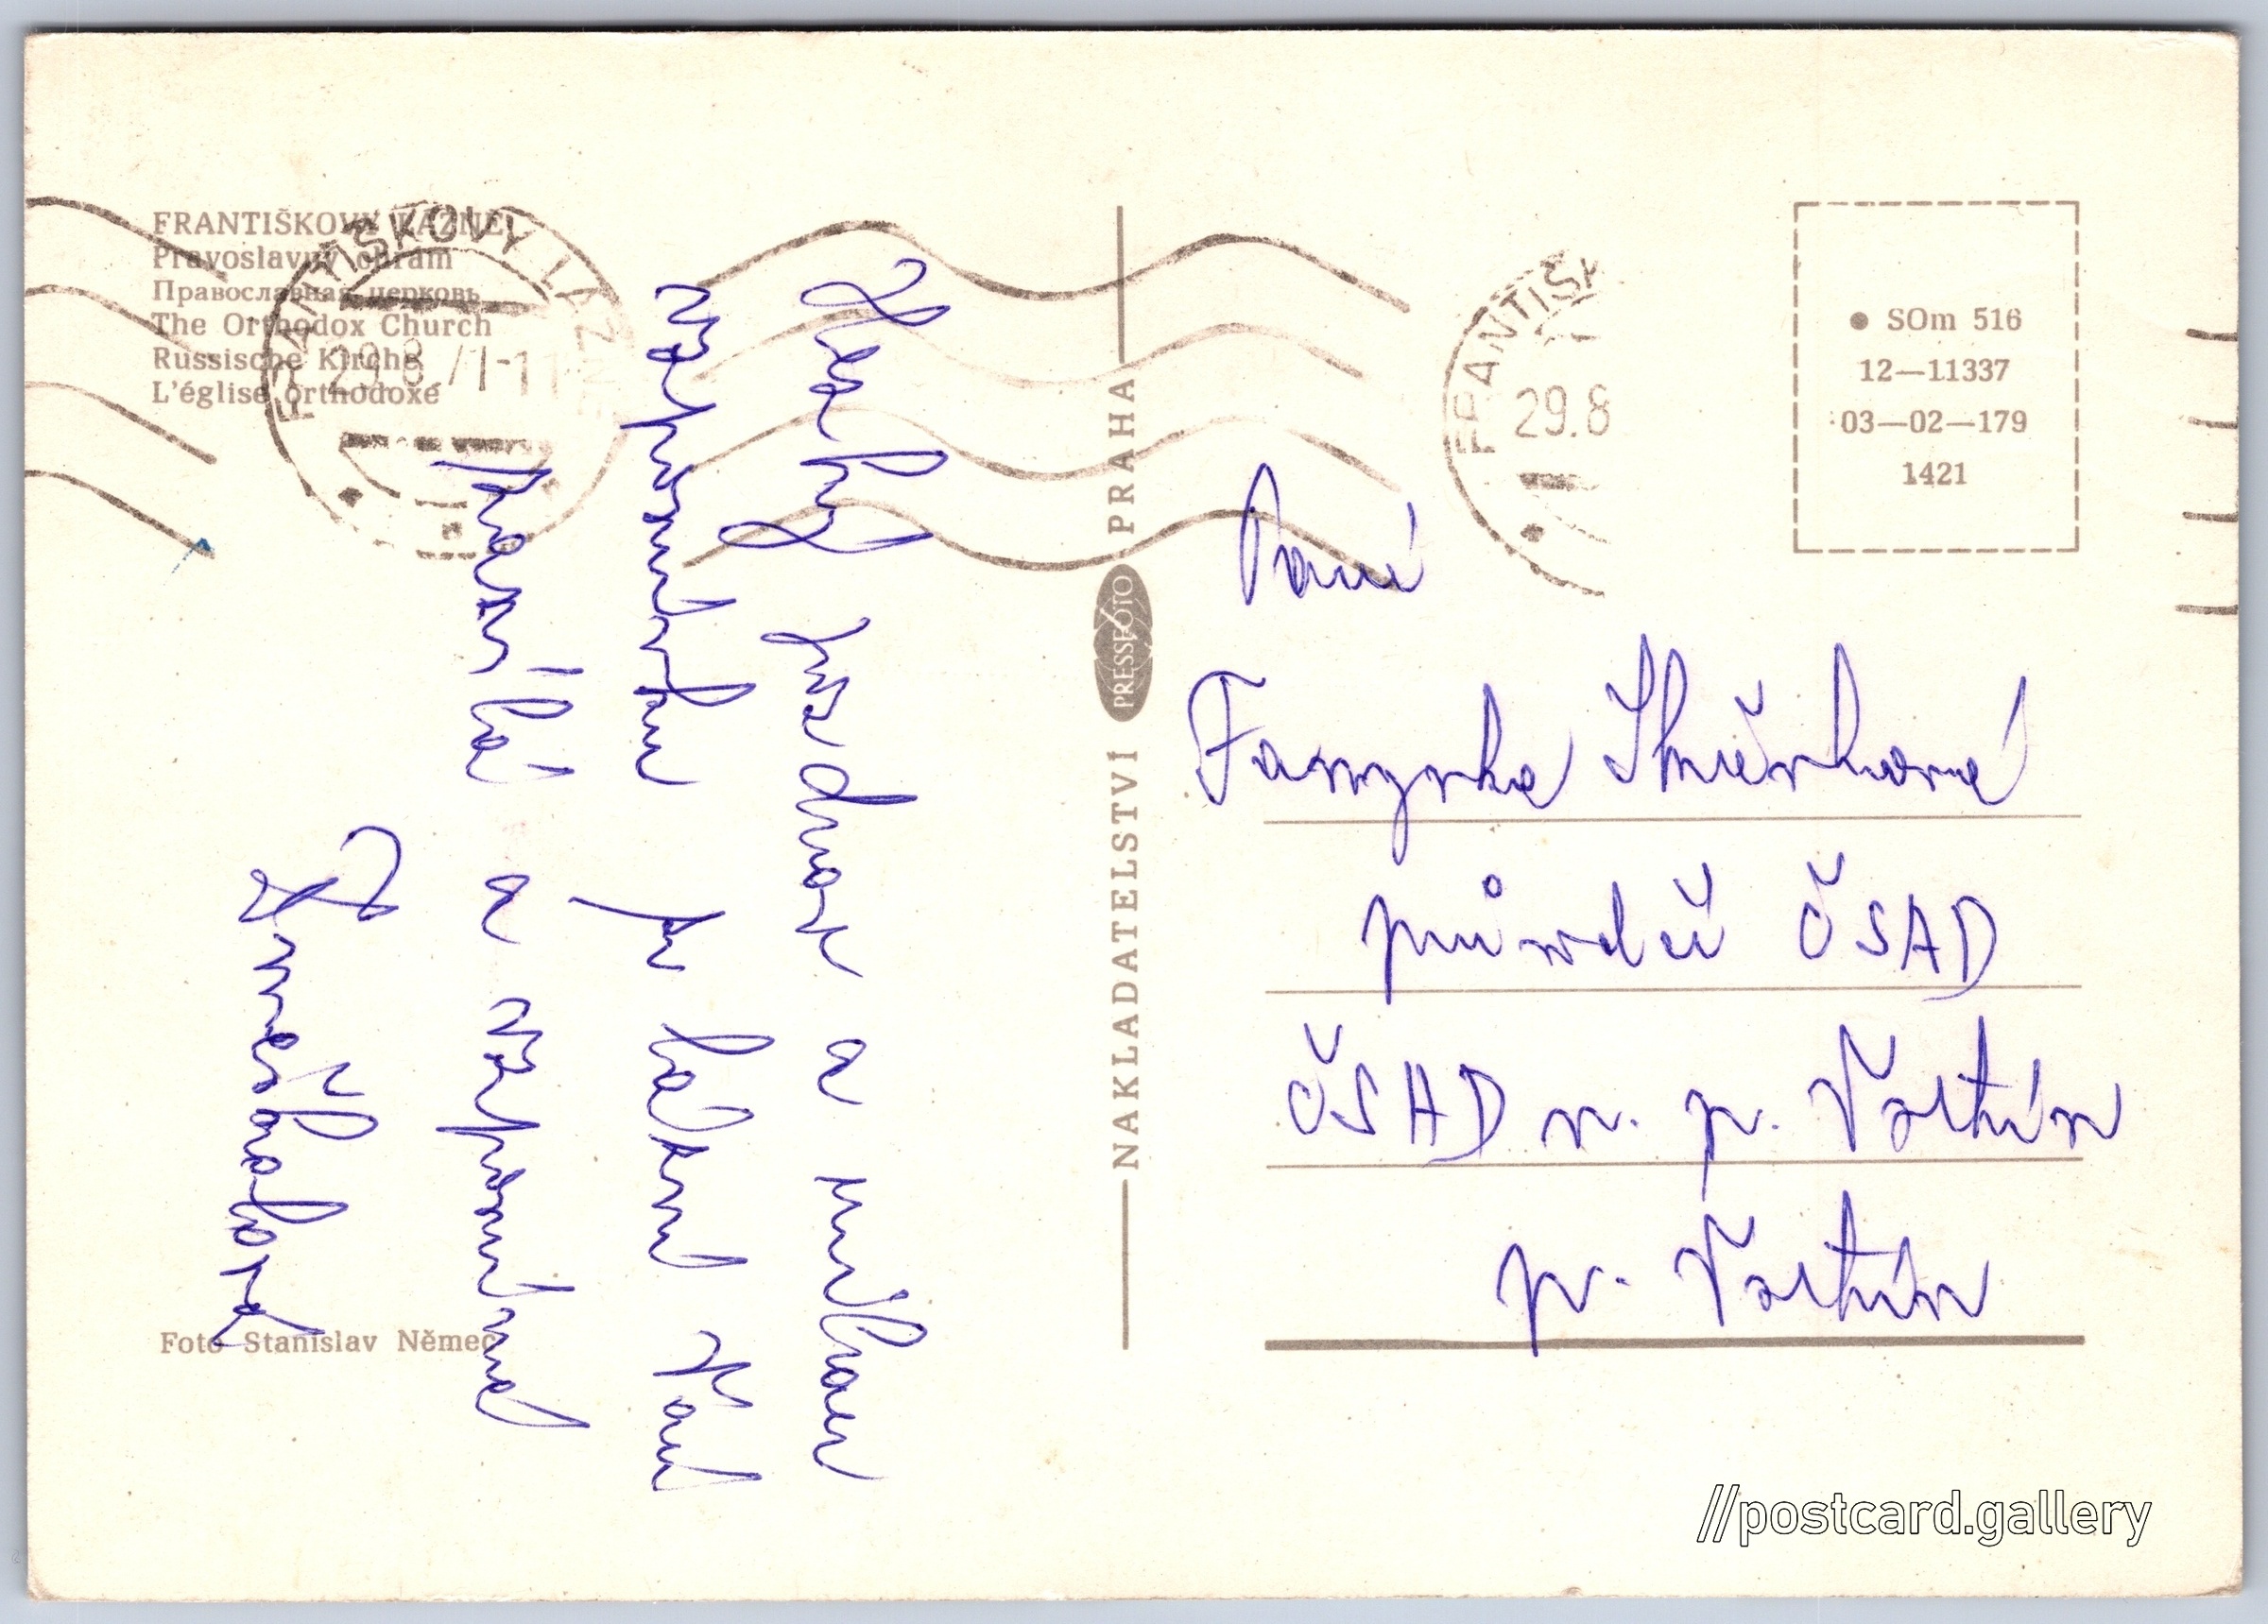 FRANTIŠKOVY LÁZNĚ
Pravoslavný chrám
Православная церковь
The Orthodox Church
Russische Kirche
L'église orthodoxe
FRANTIŠKOVY LÁZNĚ
29.8.71-11
Hezký pozdrav a milou
vzpomínku z lázní Vám
posílá a vzpomíná
Foto Stanislav Němec
NAKLADATELSTVÍ PRESSFOTO PRAHA
FRANTIŠK
29.8
● SOm 516
12—11337
03—02—179
1421
Paní
Fanynka
průvodčí ČSAD
ČSAD n. p.
p.
//postcard.gallery